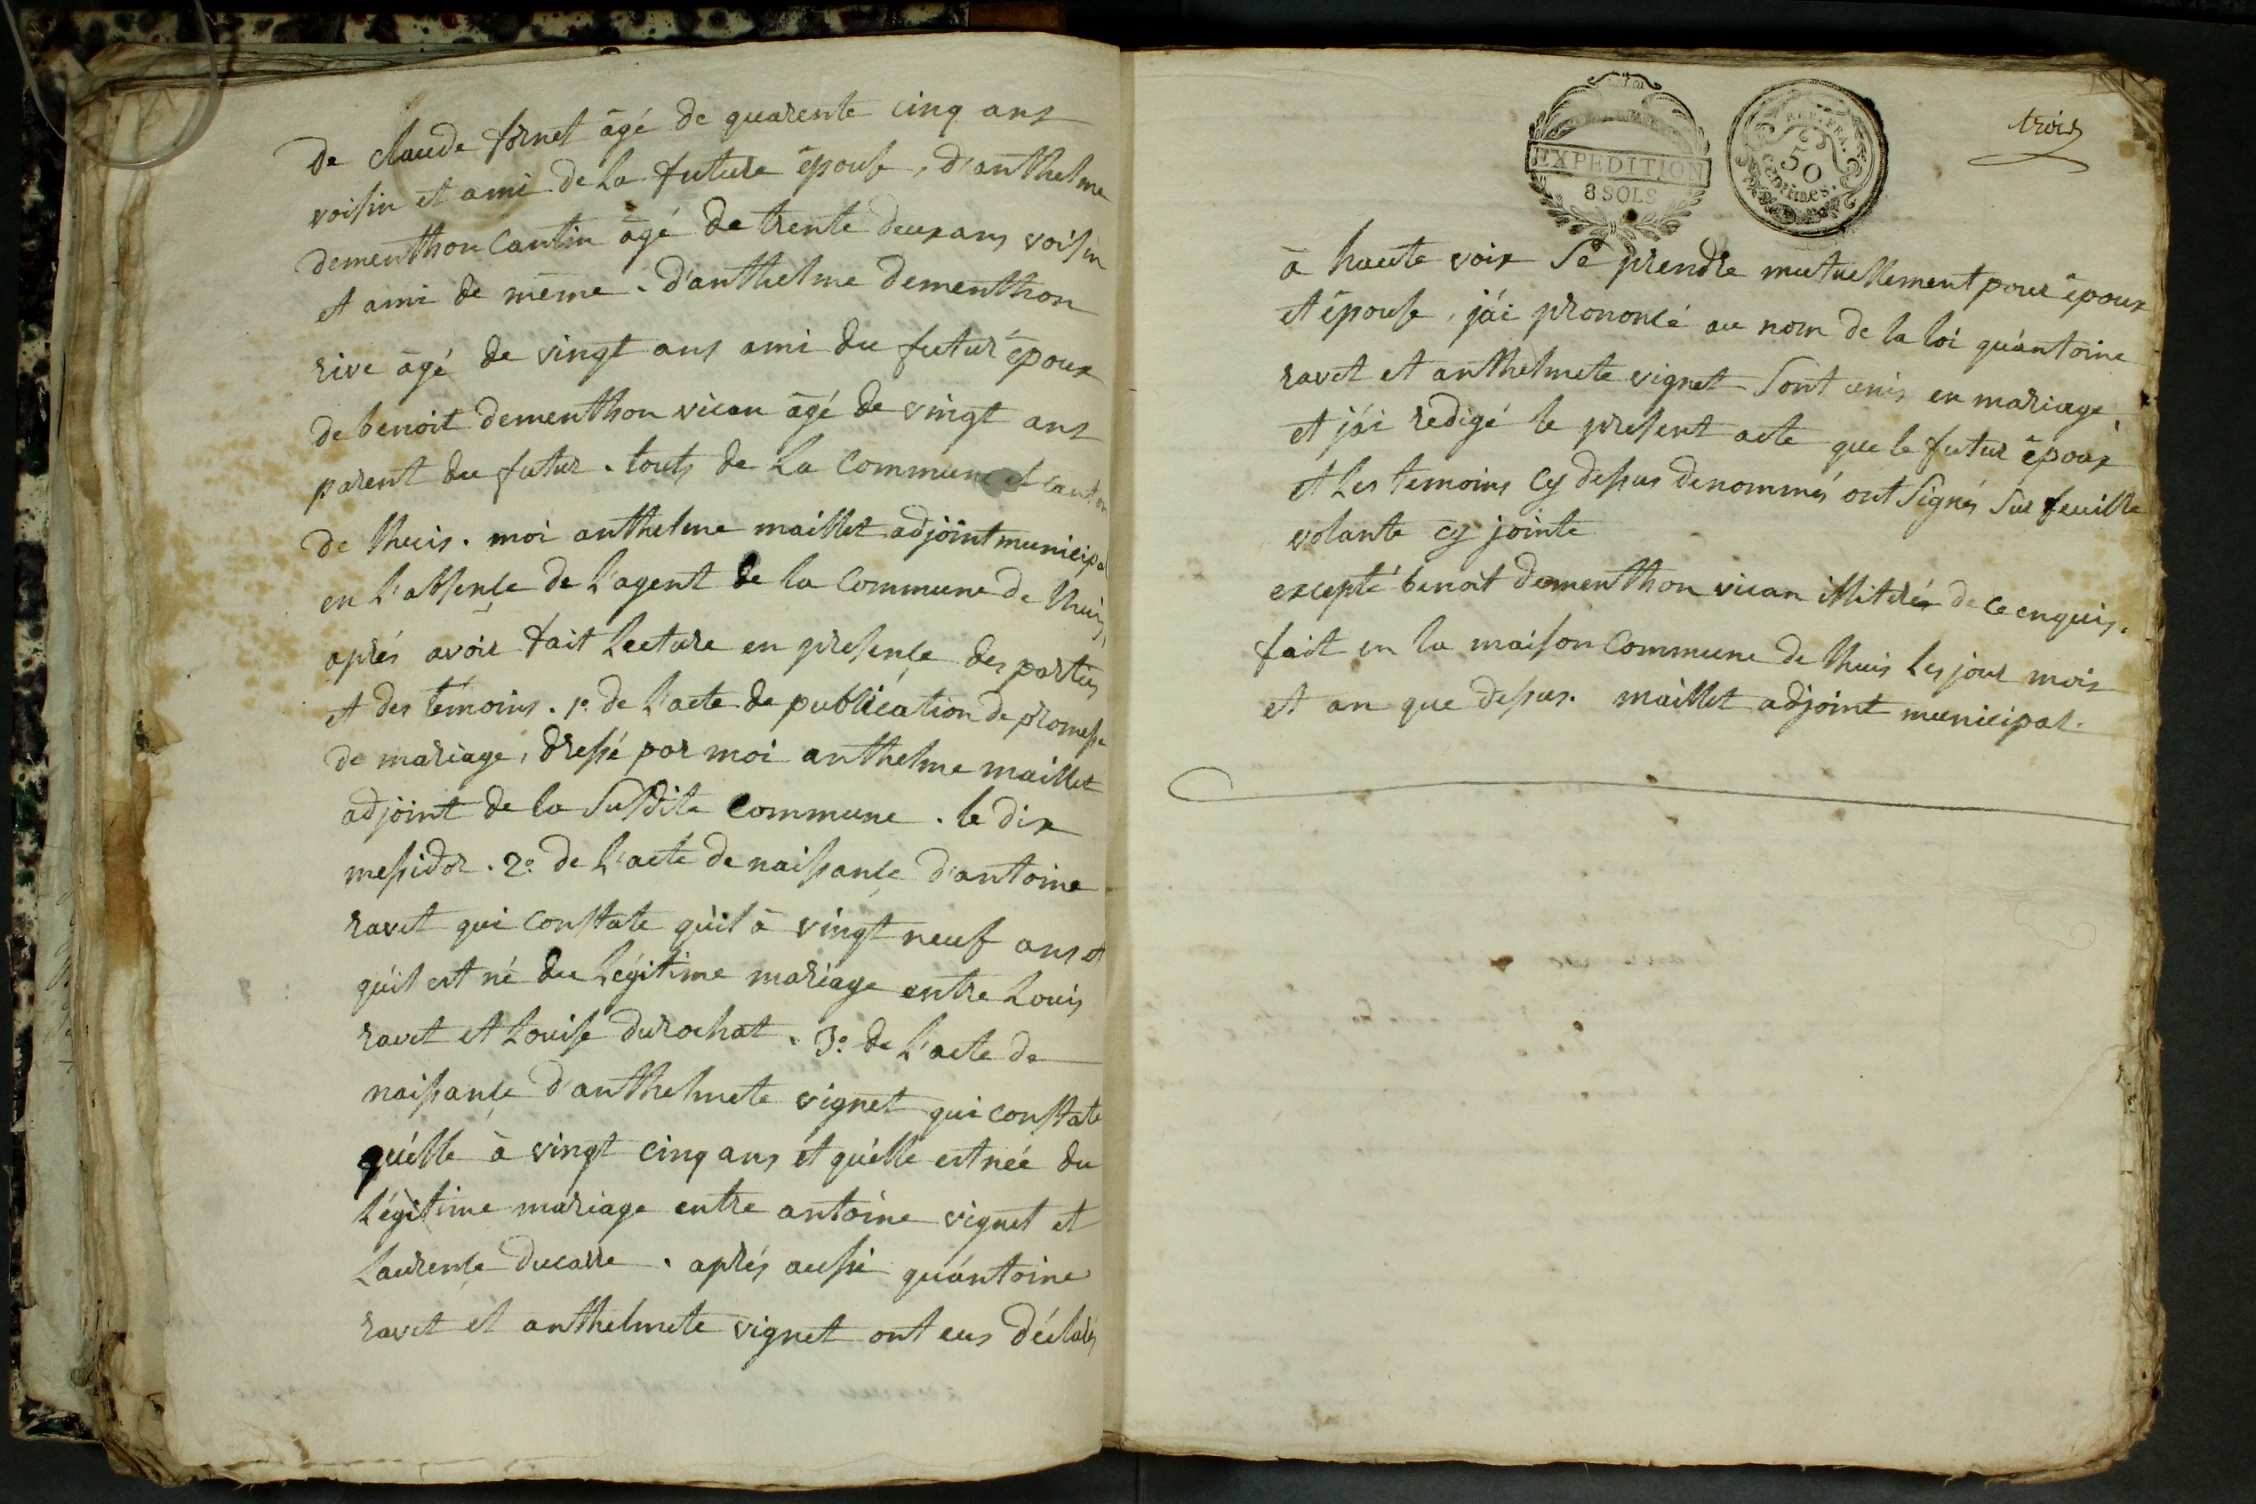 de claude fornet âgé de quarente cinq ans
voisin et ami de la future épouse, d'anthelme
dementhon cantin âgé de trente deux ans voisin
et ami de même. d'anthelme dementhon
rive âgé de vingt ans ami du futur époux
de benoit dementhon vican âgé de vingt ans
parent du futur. touts de la commune et canton
de lhuis. moi anthelme maillet adjoint municipal
en l'absençe de l'agent de la commune de lhuis,
aprés avoir fait lecture en presençe des parties
et des témoins. 1º de l'acte de publication de promesse
de mariage, dressé par moi anthelme maillet
adjoint de la susdite commune. le dix
messidor. 2º de l'acte de naissançe d'antoine
ravet qui constate qu'il à vingt neuf ans et
qu'il est né du légitime mariage entre Louis
ravet et Louise durochat. 3º de l'acte de
naissançe d'anthelmete vignet qui constate
qu'elle à vingt cinq ans et qu'elle est née du
légitime mariage entre antoine vignet et
Laurençe ducarre. aprés aussi qu'antoine
ravet et anthelmete vignet ont eus déclarés
EXPEDITION
8 SOLS
REP. FRA.
50
centimes.
trois
à haute voix se prendre mutuellement pour époux
et épouse, j'ai prononcé au nom de la loi qu'antoine
ravet et anthelmete vignet sont unis en mariage,
et j'ai redigé le present acte que le futur époux
et les temoins cy dessus denommés ont signés sur feuille
volante cy jointe
excepté benoit dementhon vican illiteré de ce enquis.
fait en la maison commune de lhuis les jour mois
et an que dessus. maillet adjoint municipal.